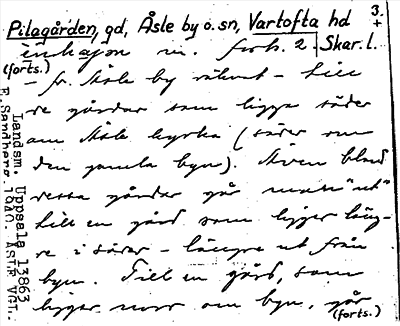 3.
+
Pilagården, gd, Åsle by o. sn, Vartofta hd
Skar. l.
in. forts. 2.
(forts.)
- fr. Åsle by räknat - till
de gårdar som ligga söder
om Åsle kyrka (söder om
den gamla byn). Även bland
dessa gårdar går man "ut"
till en gård som ligger läng-
re i söder - längre ut från
byn. Till en gård, som
ligger norr om byn, går
(forts.)
Landsm. Uppsala 13863
E. Sandberg. 1940. ÅSLE VGL.